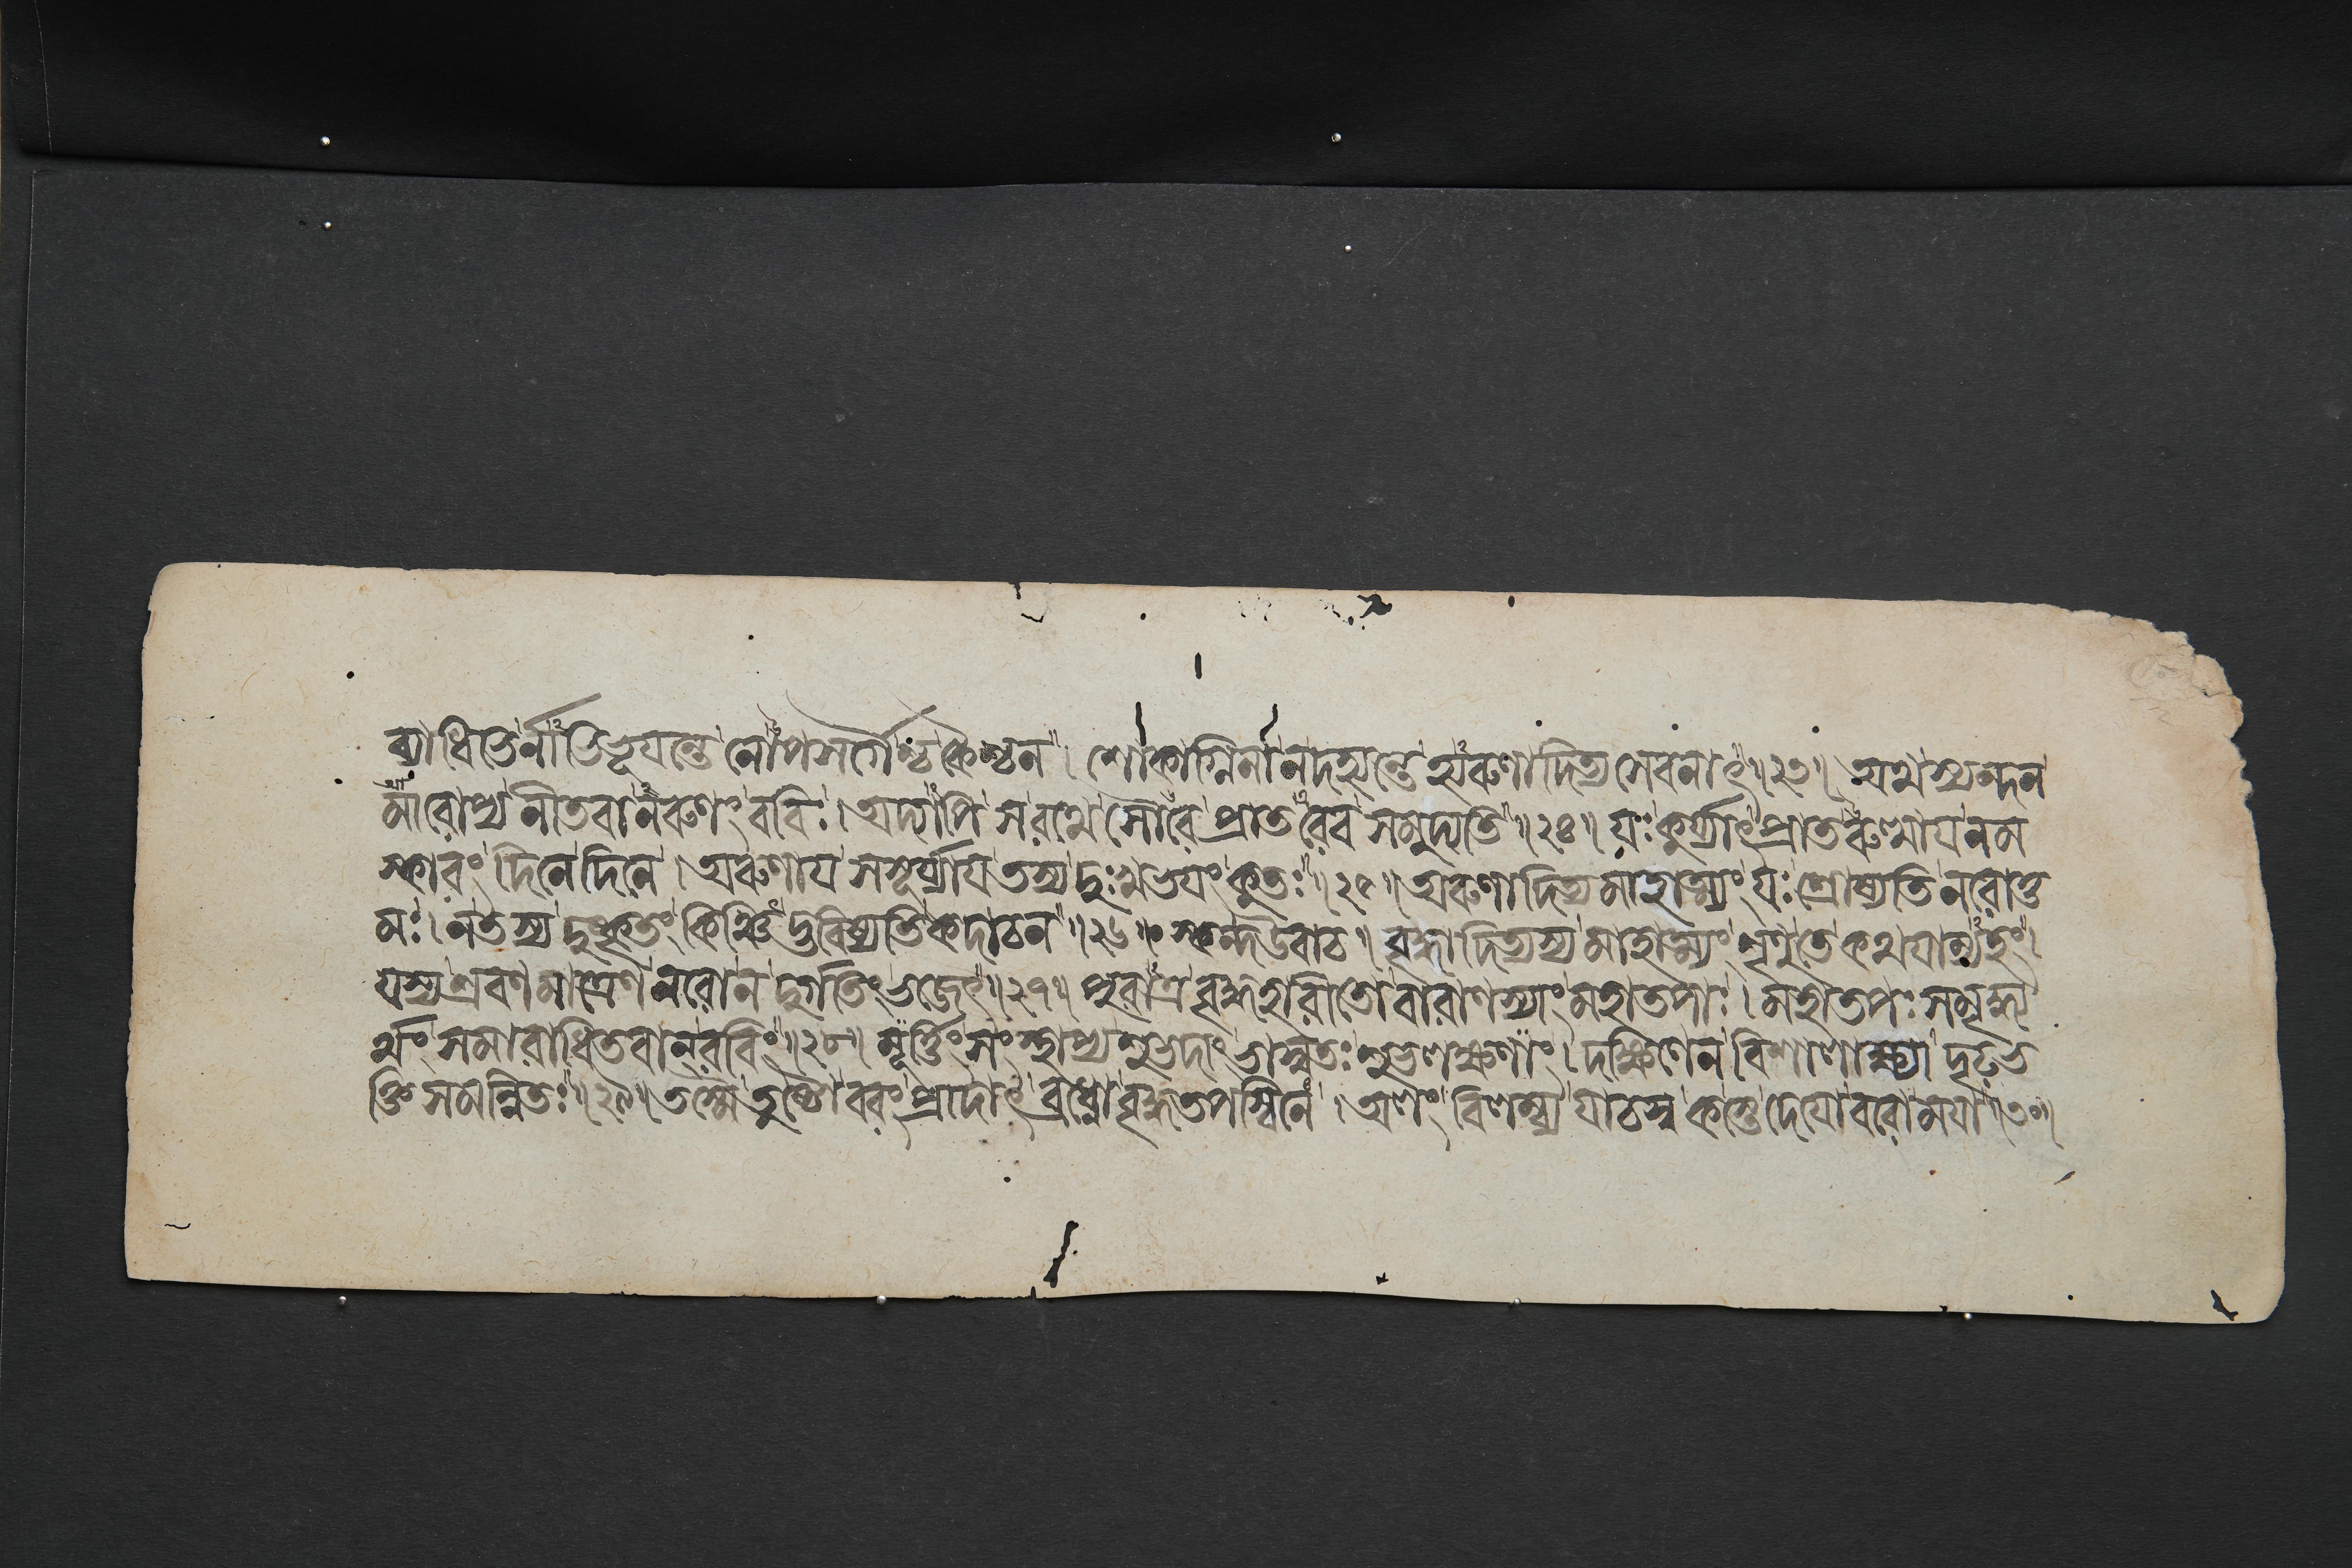 ব্যাধিভির্নাভিভূযন্তে নোপসর্গৈশ্চ কৈশ্চন । শোকাগ্নিনা ন দহ্যন্তে হ্যরুণাদিত্যসেবনাৎ ॥২৩॥ অথ স্যন্দন
মারোপ্য নীতবানরুণং রবিঃ । অদ্যাপি স রথে সৌরে প্রাতরেব সমুদ্যতি ॥২৪॥ যঃ কুর্য্যাৎ প্রাতরুত্থায নম
স্কারং দিনে দিনে । অরুণায সসূর্য্যায তস্য দুঃখভযং কুতঃ ॥২৫॥ অরুণাদিত্যমাহাত্ম্যং যঃ শ্রোষ্যতি নরোত্ত
মঃ । ন তস্য দুষ্কৃতং কিঞ্চিদ্ভবিষ্যতি কদাচন ॥২৬॥ স্কন্দ উবাচ । বৃদ্ধাদিত্যস্য মাহাত্ম্যং শৃণু তে কথযাম্যহং ।
যস্য শ্রবণমাত্রেণ নরো ন দুর্গতিং ভজেৎ ॥২৭॥ পুরাত্র বৃদ্ধহারীতো বারাণস্যাং মহাতপাঃ । মহাতপঃ সমৃদ্ধ্য
র্থং সমারাধিতবান্ রবিং ॥২৮॥ মূর্ত্তিং সংস্থাপ্য শুভদাং ভাস্বতঃ শুভলক্ষণাং । দক্ষিণেন বিশালাক্ষ্যা দৃঢভ
ক্তিসমন্বিতঃ ॥২৯॥ তস্মৈ তুষ্টো বরং প্রাদাৎ ব্রধ্নো বৃদ্ধতপস্বিনে । অলং বিলম্ব্য যাচস্ব কস্তে দেযো বরো মযা ॥৩০॥